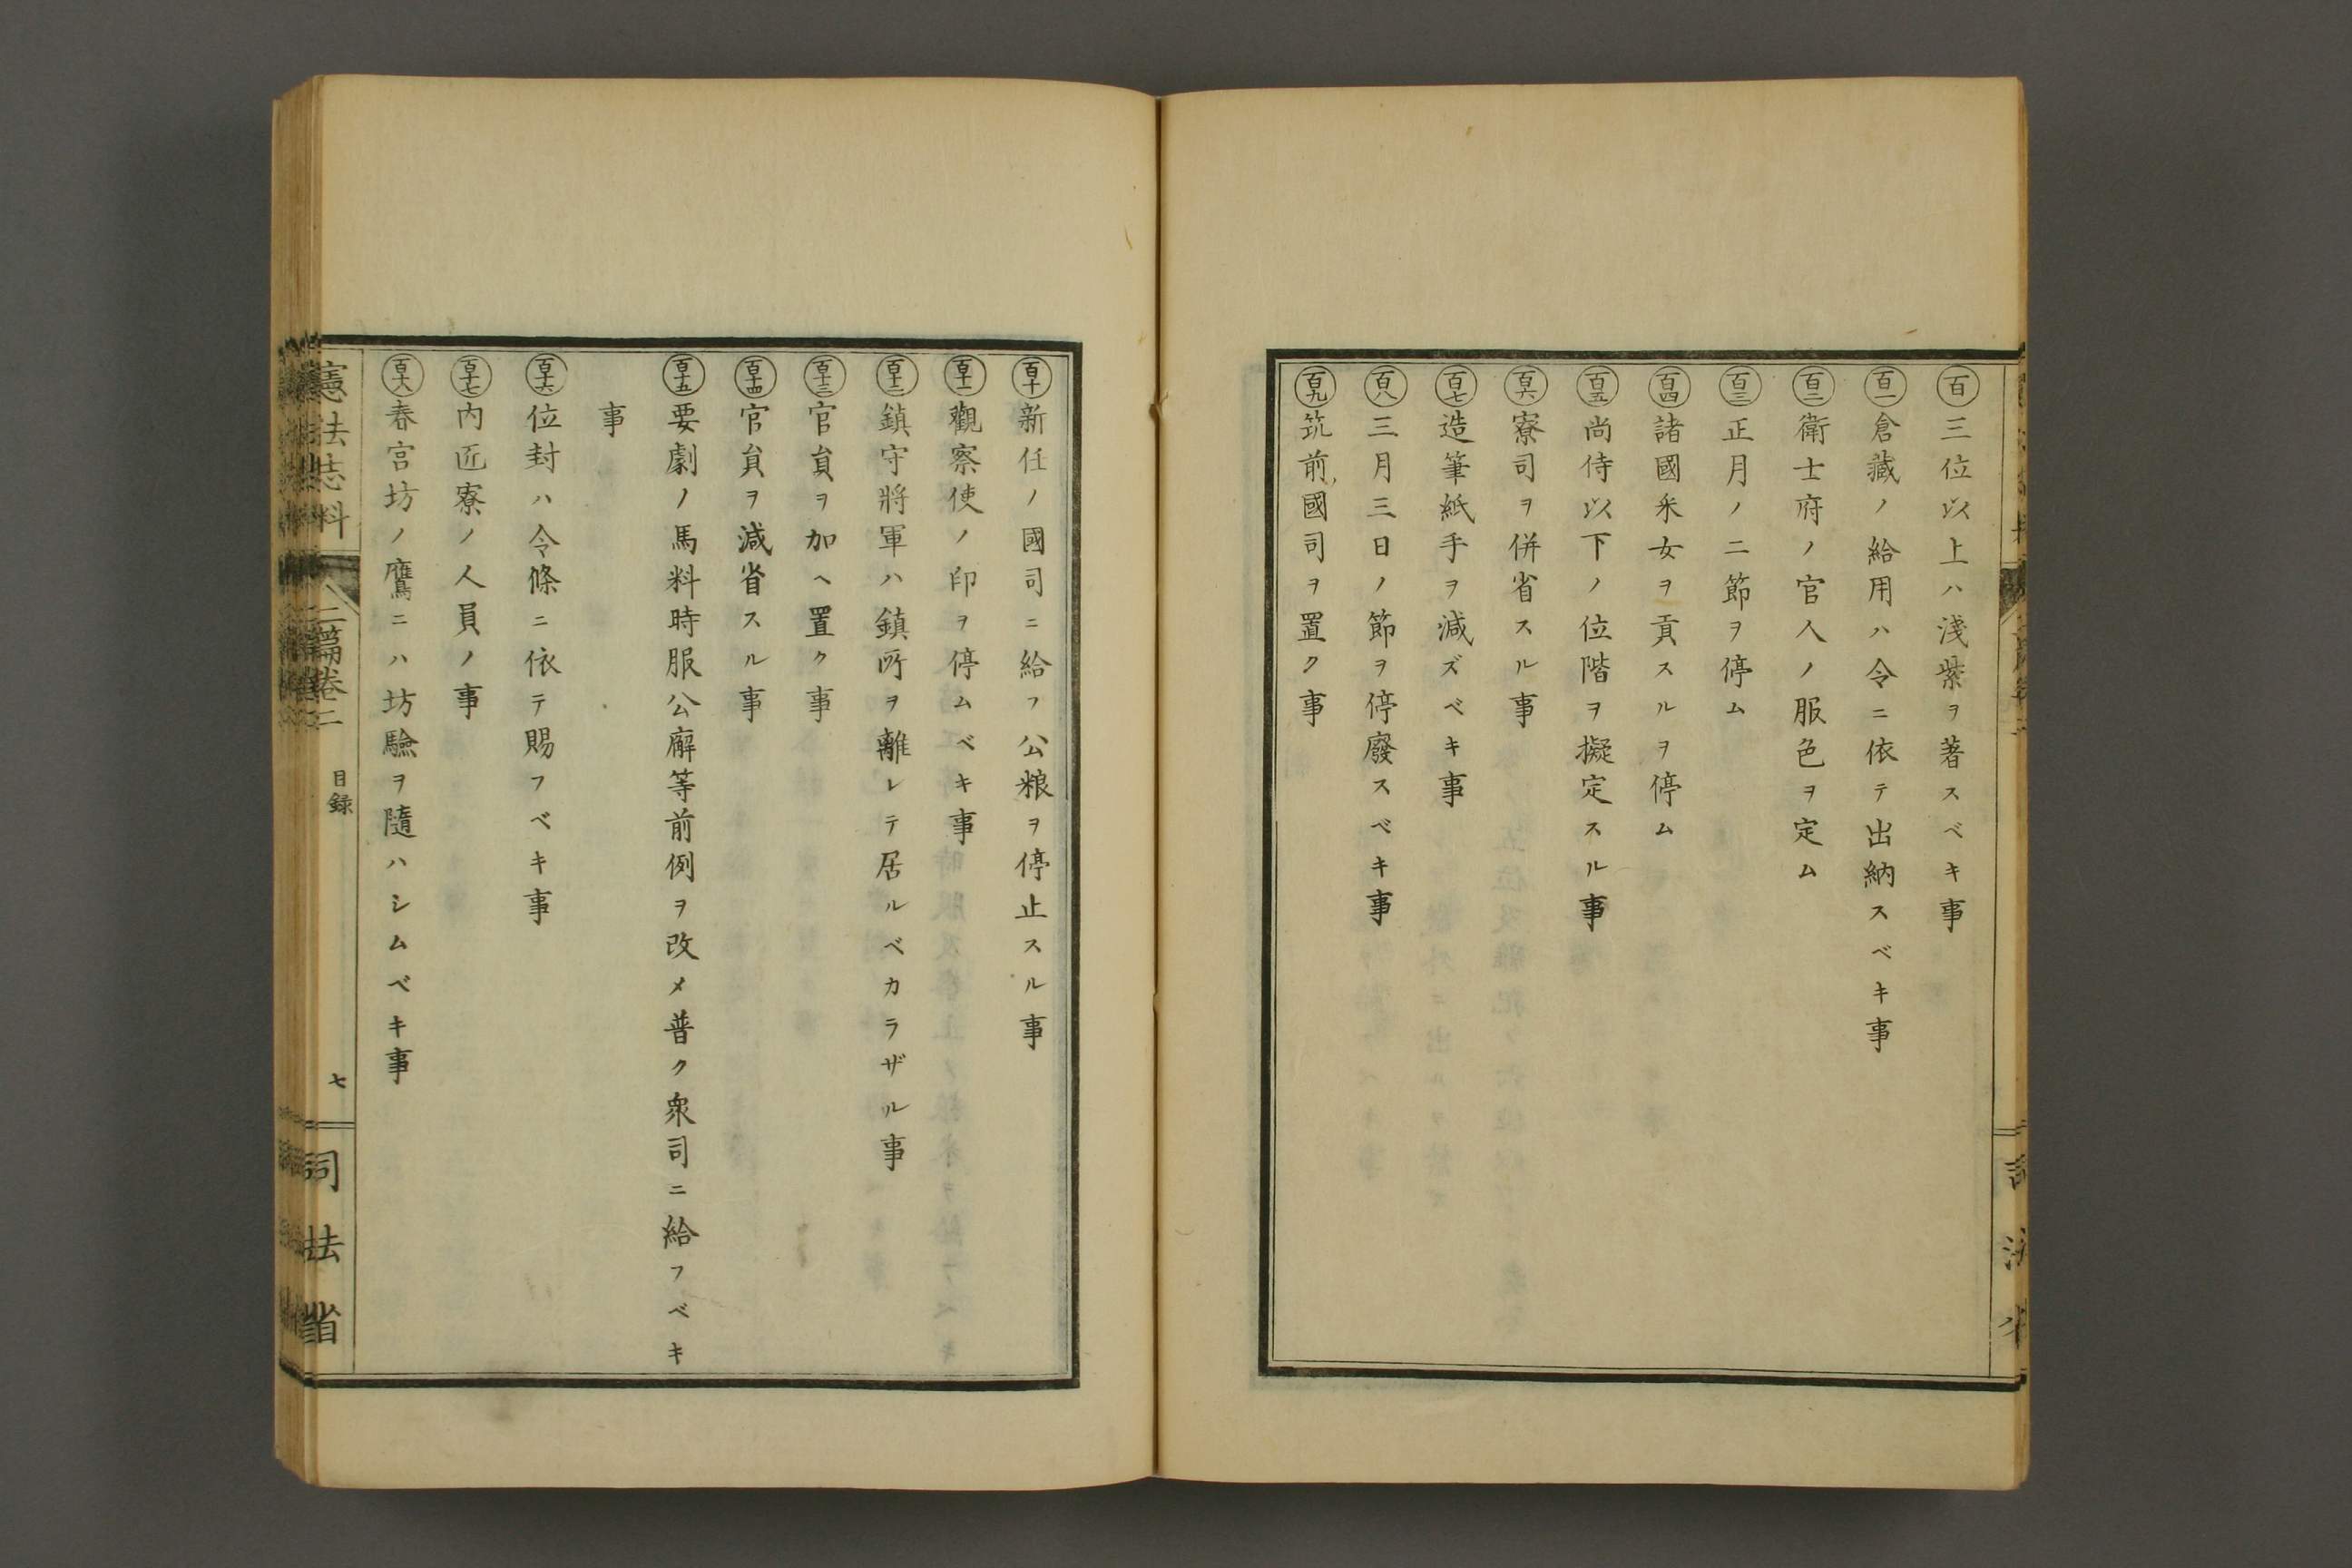 百 三位以上ハ淺紫ヲ著スベキ事
百一 倉藏ノ給用ハ令ニ依テ出納スベキ事
百二 衛士府ノ官人ノ服色ヲ定ム
百三 正月ノ二節ヲ停ム
百四 諸國釆女ヲ貢スルヲ停ム
百五 尚侍以下ノ位階ヲ擬定スル事
百六 寮司ヲ併省スル事
百七 造筆紙手ヲ減ズベキ事
百八 三月三日ノ節ヲ停廢スベキ事
百九 筑前國司ヲ置ク事
百十 新任ノ國司ニ給フ公粮ヲ停止スル事
百十一 觀察使ノ印ヲ停ムベキ事
百十二 鎮守將軍ハ鎮所ヲ離レテ居ルベカラザル事
百十三 官貟ヲ加ヘ置ク事
百十四 官貟ヲ減省スル事
百十五 要劇ノ馬料時服公廨等前例ヲ改メ普ク衆司ニ給フベキ
事
百十六 位封ハ令條ニ依テ賜フベキ事
百十七 内匠寮ノ人員ノ事
百十八 春宮坊ノ鷹ニハ坊驗ヲ隨ハシムベキ事
憲法志料 二篇卷二 目録 七 司法省